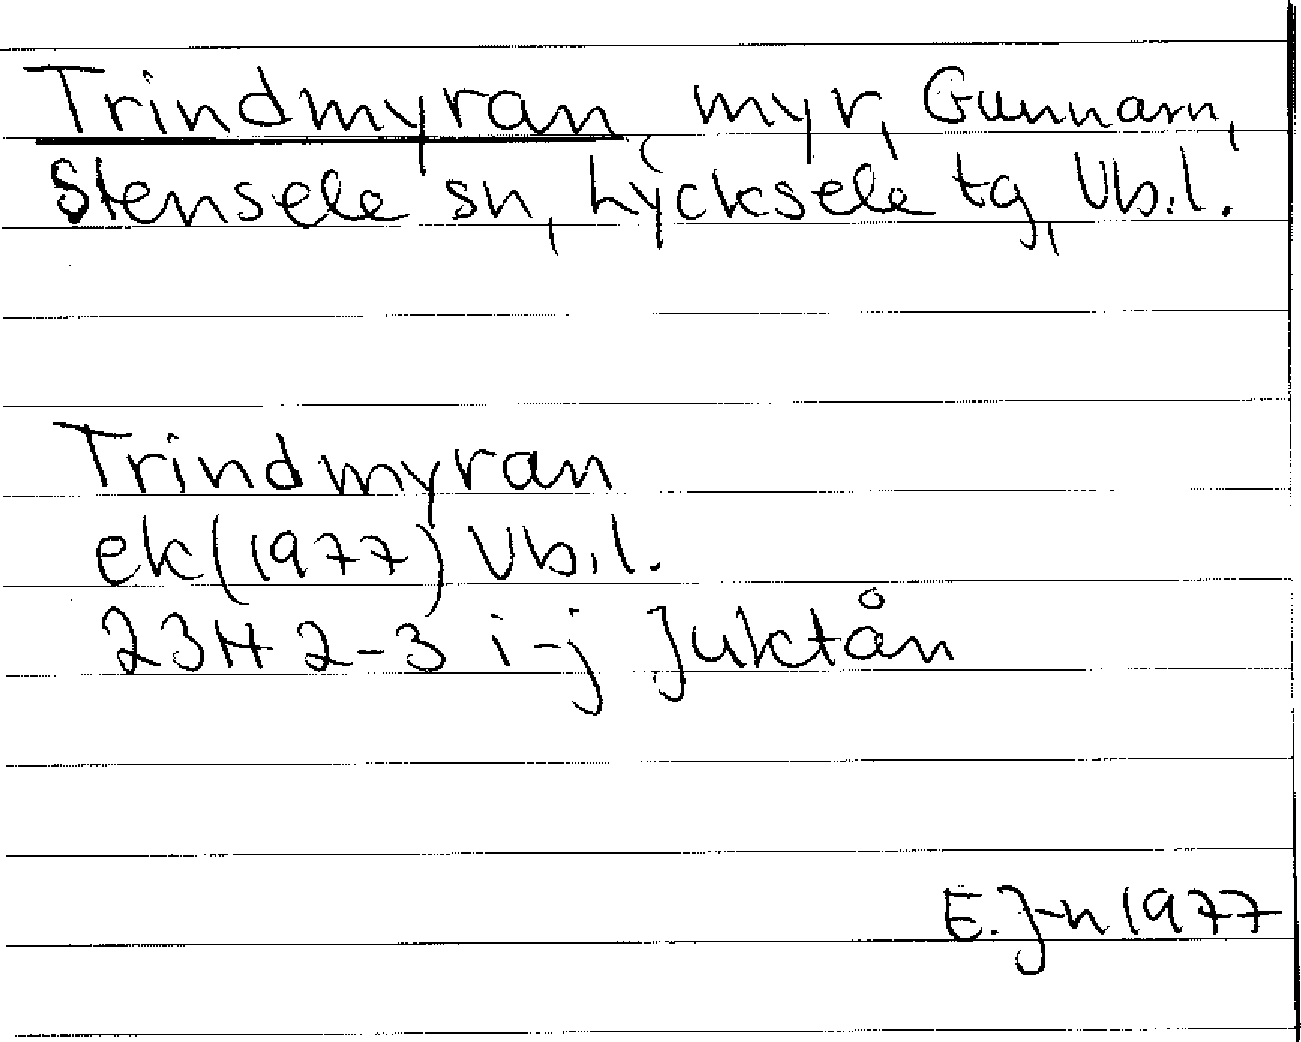 Trindmyran, myr, Gunnarn,
Stensele sn, Lycksele tg, Vb.l.
Trindmyran
ek(1977) Vb.l.
23H 2-3 i-j Juktån
E.J-n 1977